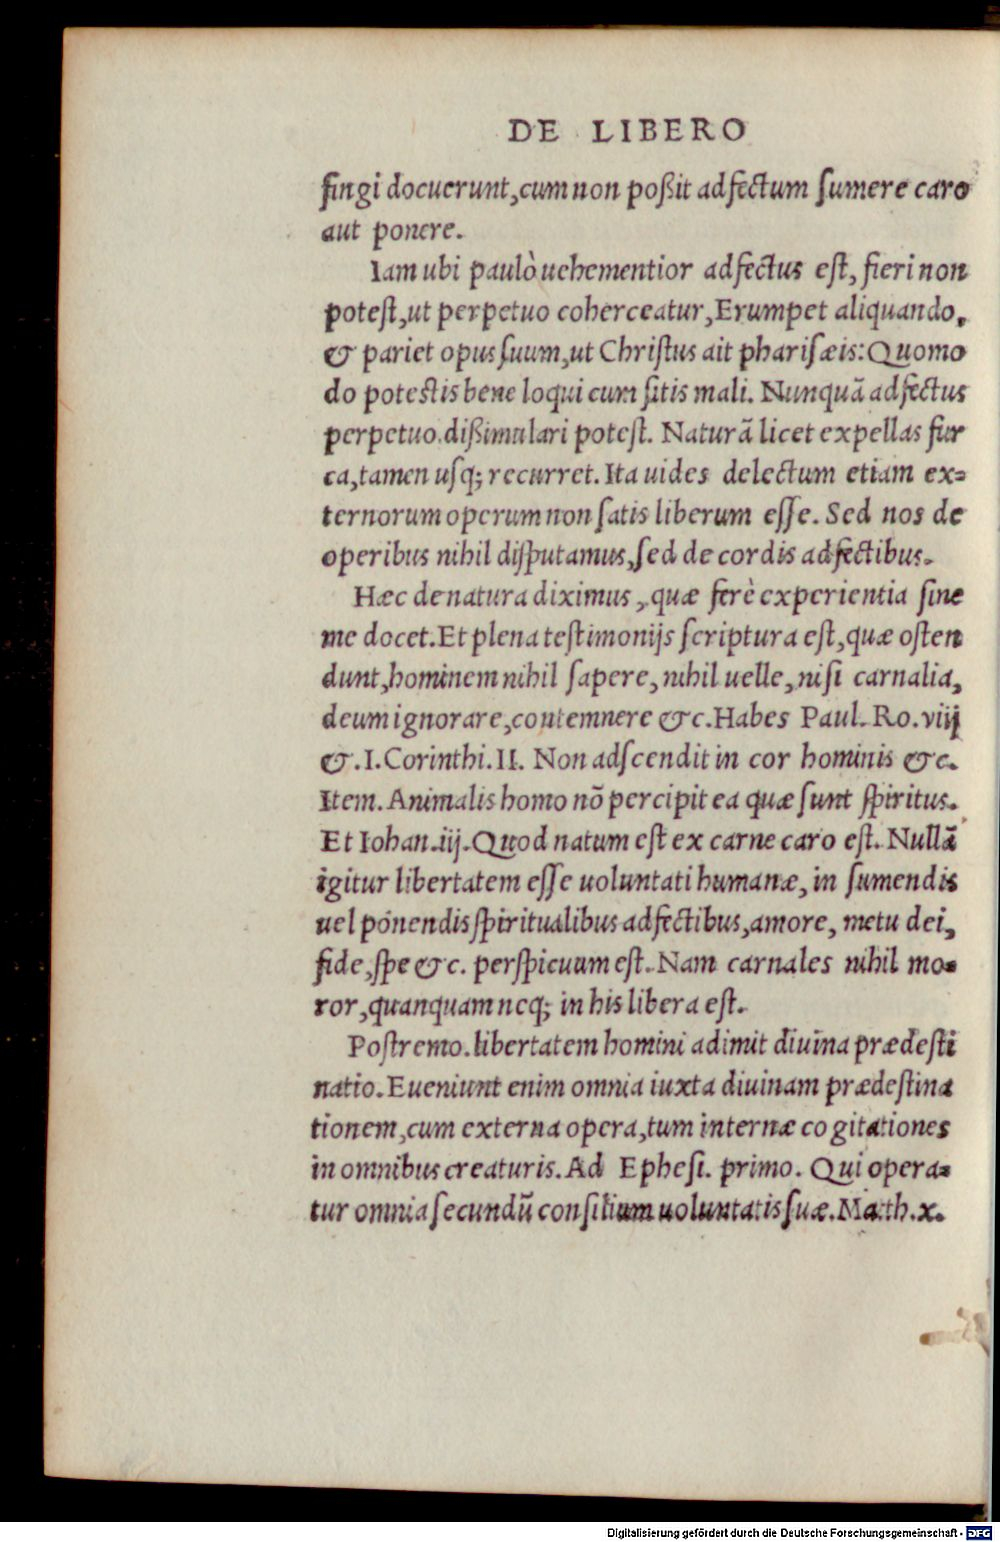 DE LIBERO
fingi docuerunt, cum non poßit adfectum ſumere caro
aut ponere.
Iam ubi paulò uehementior adfectus eſt, fieri non
poteſt, ut perpetuo coherceatur, Erumpet aliquando,
& pariet opus ſuum, ut Chriſtus ait phariſæis: Quomo
do poteſtis bene loqui cum ſitis mali. Nunquã adfectus
perpetuo dißimulari poteſt. Naturã licet expellas fur
ca, tamen uſq; recurret. Ita uides delectum etiam ex=
ternorum operum non ſatis liberum eſſe. Sed nos de
operibus nihil diſputamus, ſed de cordis adfectibus.
Hæc de natura diximus, quæ ferè experientia ſine
me docet. Et plena teſtimonijs ſcriptura eſt, quæ oſten
dunt, hominem nihil ſapere, nihil uelle, niſi carnalia,
deum ignorare, contemnere &c. Habes Paul. Ro. viij
&. I. Corinthi. II. Non adſcendit in cor hominis &c.
Item. Animalis homo nõ percipit ea quæ ſunt ſpiritus.
Et Iohan. iij. Quod natum eſt ex carne caro eſt. Nullã
igitur libertatem eſſe uoluntati humanæ, in ſumendis
uel ponendis ſpiritualibus adfectibus, amore, metu dei,
fide, ſpe &c. perſpicuum eſt. Nam carnales nihil mo=
ror, quanquam neq; in his libera eſt.
Poſtremo. libertatem homini adimit diuina prædeſti
natio. Eueniunt enim omnia iuxta diuinam prædeſtina
tionem, cum externa opera, tum internæ cogitationes
in omnibus creaturis. Ad Epheſi. primo. Qui opera=
tur omnia ſecundũ conſilium uoluntatis ſuæ. Matth. x.
Digitalisierung gefördert durch die Deutsche Forschungsgemeinschaft - DFG